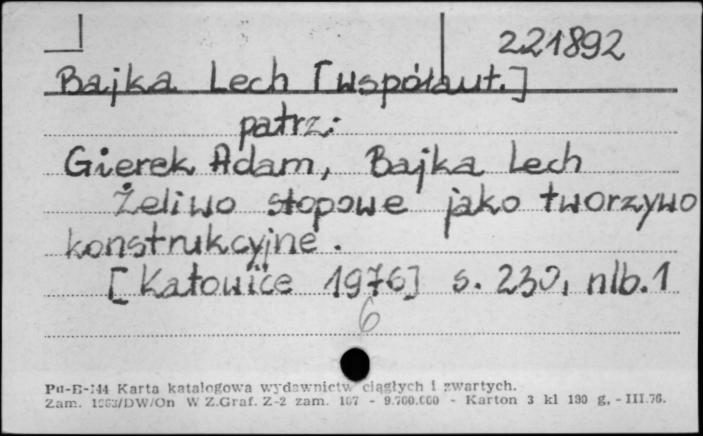 221892
Bajka Lech [współaut.]
patrz:
Gierek Adam, Bajka Lech
Żeliwo stopowe jako tworzywo
konstrukcyjne.
[Katowice 1976] s. 230, nlb. 1
6
Karta katalogowa wydawnictw ciągłych i zwartych.
Zam. W Z.Graf. Z-2 zam. 107 - - Karton 3 kl 190 g, - III.76.